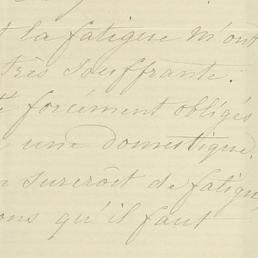 t la fatigue m'ont
très souffrante.
forcément obligés
une domestique,
surcroît de fatigue,
ons qu'il faut